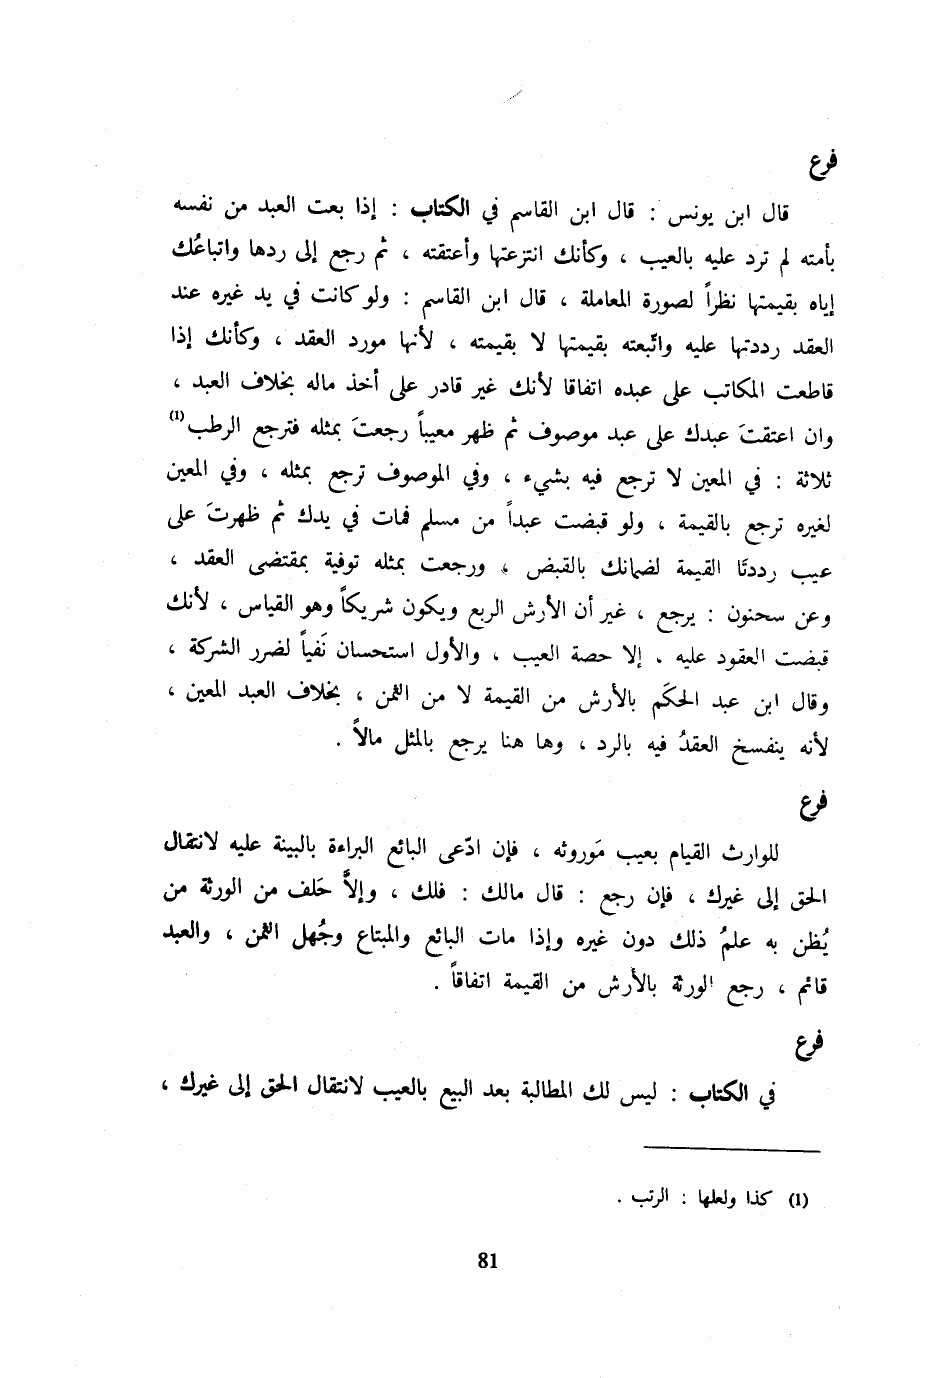 فرع
قال ابن يونس : قال ابن القاسم في الكتاب : إذا بعت العبد من نفسه
بأمته لم ترد عليه بالعيب ، وكأنك انتزعتها وأعتقته ، ثم رجع إلى ردها واتباعُك
إياه بقيمتها نظراً لصورة المعاملة ، قال ابن القاسم : ولو كانت في يد غيره عند
العقد رددتها عليه واتّبعته بقيمتها لا بقيمته ، لأنها مورد العقد ، وكأنك إذا
قاطعت المكاتب على عبده اتفاقا لأنك غير قادر على أخذ ماله بخلاف العبد ،
وان اعتقتَ عبدك على عبد موصوف ثم ظهر معيباً رجعتَ بمثله فترجع الرطب(1)
ثلاثة : في المعين لا ترجع فيه بشيء ، وفي الموصوف ترجع بمثله ، وفي المعين
لغيره ترجع بالقيمة ، ولو قبضت عبداً من مسلم فمات في يدك ثم ظهرتَ على
عيب رددتَا القيمة لضمانك بالقبض ، ورجعت بمثله توفية بمقتضى العقد ،
وعن سحنون : يرجع ، غير أن الأرش الربع ويكون شريكاً وهو القياس ، لأنك
قبضت العقود عليه . إلا حصة العيب ، والأول استحسان نَفياً لضرر الشركة ،
وقال ابن عبد الحكَم بالأرش من القيمة لا من الثمن ، بخلاف العبد المعين ،
لأنه ينفسخ العقدُ فيه بالرد ، وها هنا يرجع بالمثل مالاً .
فرع
للوارث القيام بعيب مَوروثه ، فإن ادّعى البائع البراءة بالبينة عليه لانتقال
الحق إلى غيرك ، فإن رجع : قال مالك : فلك ، وإلاَّ حَلف من الورثة من
يُظن به علمُ ذلك دون غيره وإذا مات البائع والمبتاع وجُهل الثمن ، والعبد
قائم ، رجع الورثة بالأرش من القيمة اتفاقاً .
فرع
في الكتاب : ليس لك المطالبة بعد البيع بالعيب لانتقال الحق إلى غيرك ،
(1) كذا ولعلها : الرتب .
81